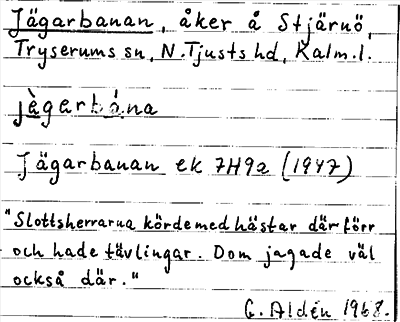 Jägarbanan, åker å Stjärnö,
Tryserums sn, N. Tjusts hd, Kalm. l.
jàgarbána
Jägarbanan ek 7H9a (1947)
"Slottsherrarna körde med hästar där förr
och hade tävlingar. Dom jagade väl
också där."
G. Aldén 1968.